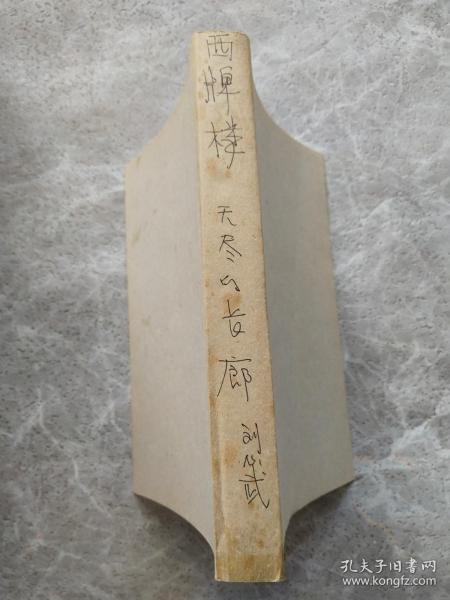 西牌楼
无尽的长廊
刘华武
孔夫子旧书网
www.kongfz.com